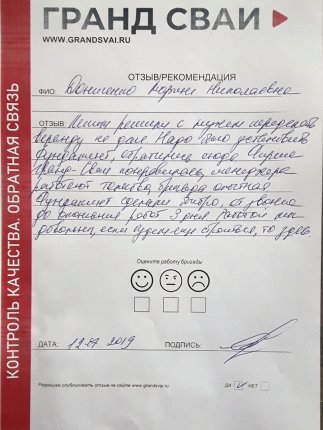 ГРАНД СВАИ
WWW.GRANDSVAI.RU
КОНТРОЛЬ КАЧЕСТВА. ОБРАТНАЯ СВЯЗЬ
ОТЗЫВ/РЕКОМЕНДАЦИЯ
ФИО: Марина Николаевна
ОТЗЫВ: решили с мужем
веранду на даче. Надо было установить
фундамент, обратились сюда. Фирма
Гранд-Сваи понравилась, менеджера
работают бригада опытная
Фундамент сделали быстро, от звонка
до окончания работ 3 дня. Работой мы
довольны, если будем еще строиться, то здесь
Оцените работу бригады
ДАТА: 2019 ПОДПИСЬ:
Разрешаю опубликовать отзыв на сайте www.grandsvai.ru ДА НЕТ